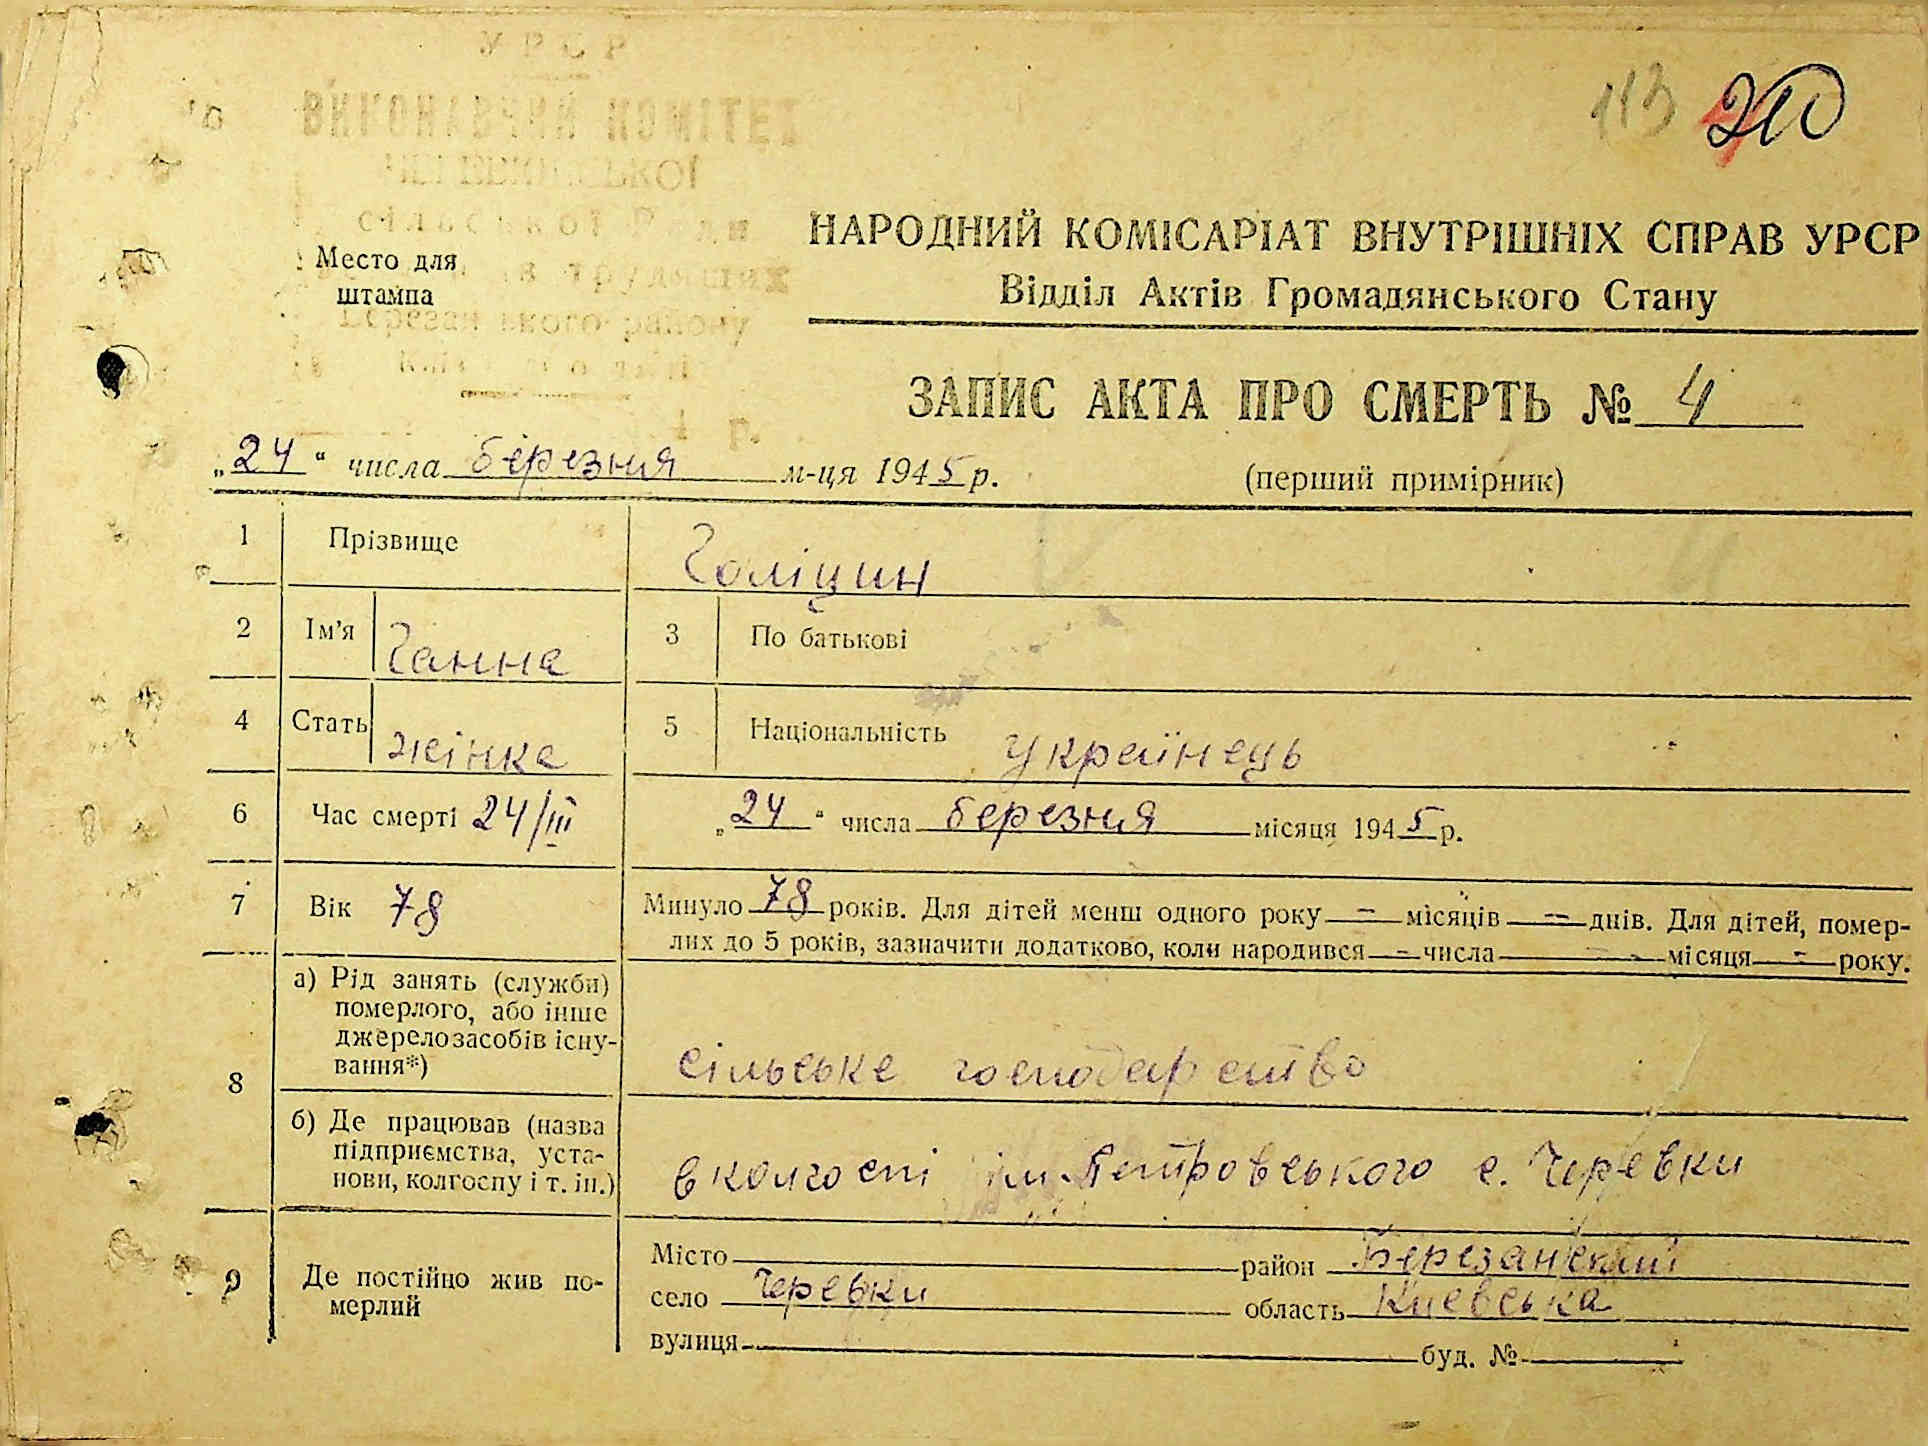 УРСР
ВИКОНАВЧИЙ КОМІТЕТ
сільської Ради
трудящих
Березанського району
113 210
Место для
штампа
НАРОДНИЙ КОМІСАРІАТ ВНУТРІШНІХ СПРАВ УРСР
Відділ Актів Громадянського Стану
ЗАПИС АКТА ПРО СМЕРТЬ № 4
„24“ числа березня м-ця 1945 р.
(перший примірник)
1 Прізвище Голіцин
2 Ім'я Ганна 3 По батькові
4 Стать жінка 5 Національність українець
6 Час смерті 24/III „24“ числа березня місяця 1945 р.
7 Вік 78 Минуло 78 років. Для дітей менш одного року – місяців – днів. Для дітей, помер-
лих до 5 років, зазначити додатково, коли народився – числа – місяця – року.
8 а) Рід занять (служби)
померлого, або інше
джерело засобів існу-
вання*)
сільське господарство
б) Де працював (назва
підприємства, уста-
нови, колгоспу і т. ін.)
в колгоспі ім. Петровського с. Черевки
9 Де постійно жив по-
мерлий
Місто район Березанский
село Черевки область Киевська
вулиця буд. №